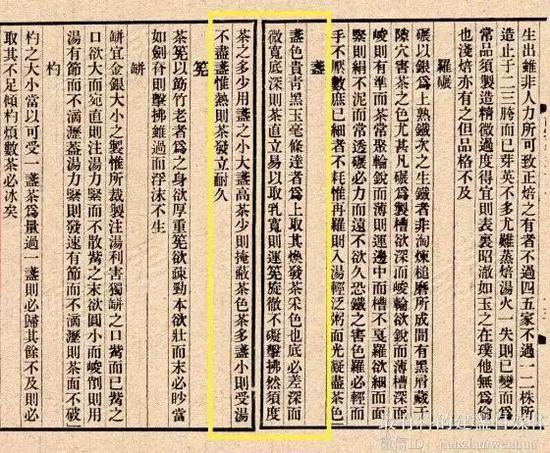 生出雖非人力所可致正焙之有者不過四五家不過一二株所
造止于二三胯而已芽英不多尤難蒸焙湯火一失則已變而爲
常品須製造精微過度得宜則表裏昭澈如玉之在璞他無爲倫
也淺焙亦有之但品格不及
羅碾
碾以銀爲上熟鐵次之生鐵者非淘煉槌磨所成間有黑屑藏于
隙穴害茶之色尤甚凡碾爲製槽欲深而峻輪欲銳而薄槽深而
峻則有準而茶常聚輪銳而薄則運邊中而槽不戛羅欲細而面
緊則絹不泥而常透碾必力而遠不欲久恐鐵之害色羅必輕而
手不厭數庶已細者不耗惟再羅則入湯輕泛粥而光凝盡茶色
盞
盞色貴青黑玉毫條達者爲上取其煥發茶采色也底必差深而
微寬底深則茶直立易以取乳寬則運筅旋徹不礙擊拂然須度
茶之多少用盞之小大盞高茶少則掩蔽茶色茶多盞小則受湯
不盡盞惟熱則茶發立耐久
筅
茶筅以筯竹老者爲之身欲厚重筅欲疎勁本欲壯而末必眇當
如劍脊則擊拂雖過而浮沫不生
缾
缾宜金銀大小之製惟所裁製注湯利害獨缾之口觜而已觜之
口欲大而宛直則注湯力緊而不散觜之末欲圓小而峻削則用
湯有節而不滴瀝蓋湯力緊則發速有節而不滴瀝則茶面不破
杓
杓之大小當以可受一盞茶爲量過一盞則必歸其餘不及則必
取其不足傾杓煩數茶必冰矣
微信号: junzhunwenhua